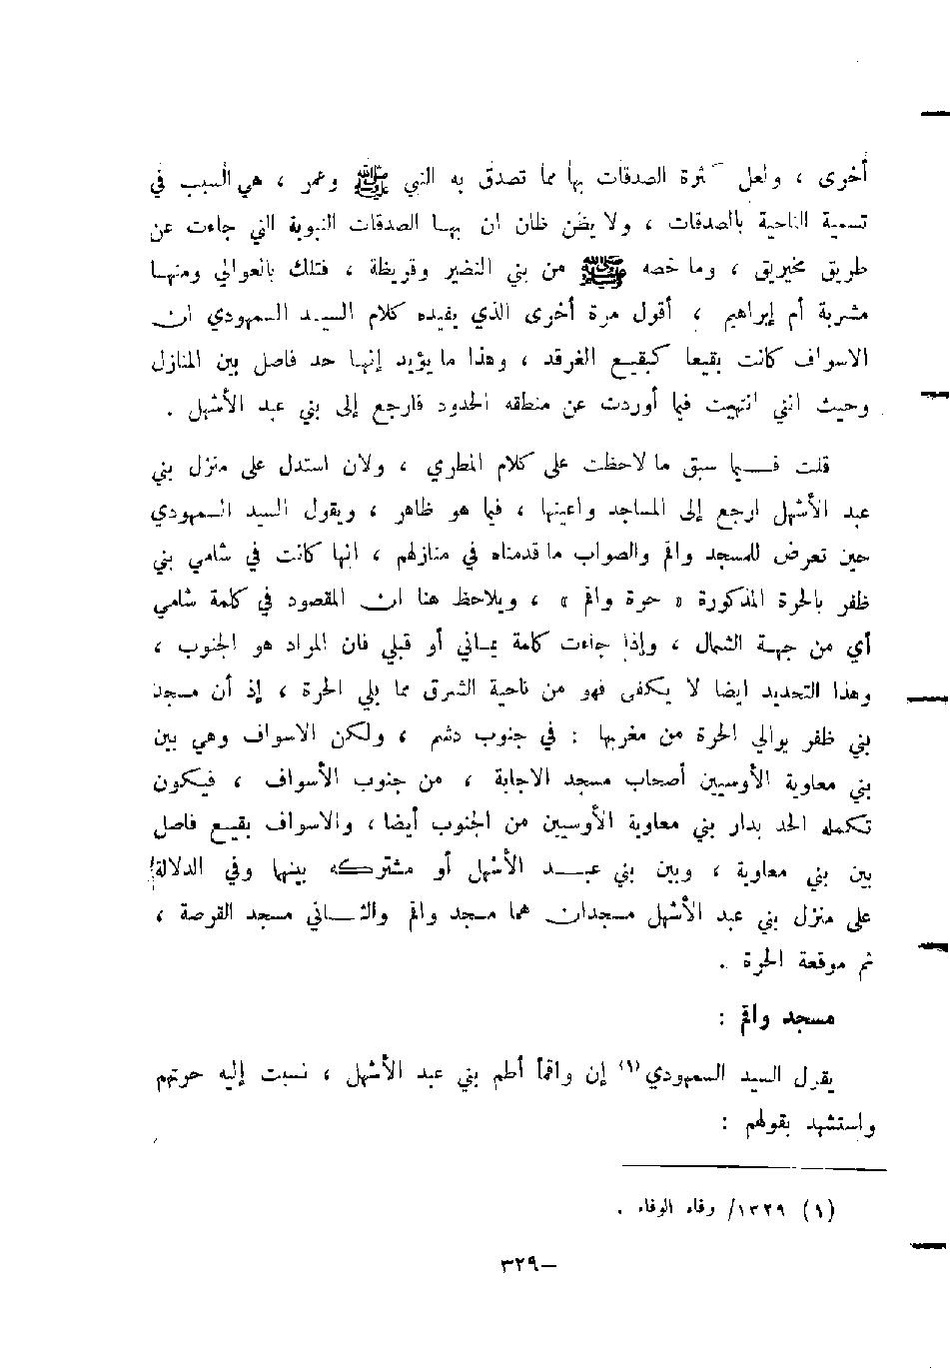 أخرى ، ولعل كثرة الصدقات بها مما تصدق به النبي ﷺ وعمر ، هي السبب في
تسمية الناحية بالصدقات ، ولا يظن ظان ان بها الصدقات النبوية التي جاءت عن
طريق مخيريق ، وما خصه ﷺ من بني النضير وقريظة ، فتلك بالعوالي ومنها
مشربة أم إبراهيم ، أقول مرة أخرى الذي يفيده كلام السيد السمهودي ان
الاسواف كانت بقيعا كبقيع الغرقد ، وهذا ما يؤيد إنها حد فاصل بين المنازل
وحيث انني انتهيت فيما أوردت عن منطقه الحدود فارجع إلى بني عبد الأشهل .
قلت فيما سبق ما لاحظت على كلام المطري ، ولان استدل على منزل بني
عبد الأشهل ارجع إلى المساجد واعينها ، فيما هو ظاهر ، ويقول السيد السمهودي
حين تعرض للمسجد واقم والصواب ما قدمناه في منازلهم ، انها كانت في شامي بني
ظفر بالحرة المذكورة « حرة واقم » ، ويلاحظ هنا ان المقصود في كلمة شامي
أي من جهة الشمال ، وإذا جاءت كلمة يماني أو قبلي فان المراد هو الجنوب ،
وهذا التحديد ايضا لا يكفى فهو من ناحية الشرق مما يلي الحرة ، إذ أن مسجد
بني ظفر يوالي الحرة من مغربها : في جنوب دشم ، ولكن الاسواف وهي بين
بني معاوية الأوسيين أصحاب مسجد الاجابة ، من جنوب الأسواف ، فيكون
تكمله الحد بدار بني معاوية الأوسيين من الجنوب أيضا ، والاسواف بقيع فاصل
بين بني معاوية ، وبين بني عبد الأشهل أو مشتركه بينها وفي الدلالة
على منزل بني عبد الأشهل مسجدان هما مسجد واقم والثاني مسجد القرصة ،
ثم موقعة الحرة .
مسجد واقم :
يقول السيد السمهودي(١) إن واقماً أطم بني عبد الأشهل ، نسبت إليه حرتهم
واستشهد بقولهم :
(١) ١٣٢٩/ وفاء الوفاء .
–٣٢٩